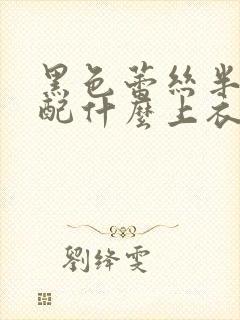 黑色蕾絲半
配什麼上衣
劉絳雯